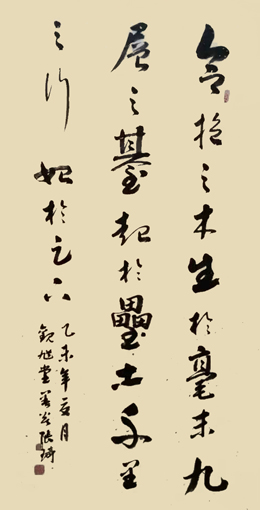 合抱之木生於毫末九
層之臺起於壘土千里
之行始於足下
乙未年夏月
觀旭堂張